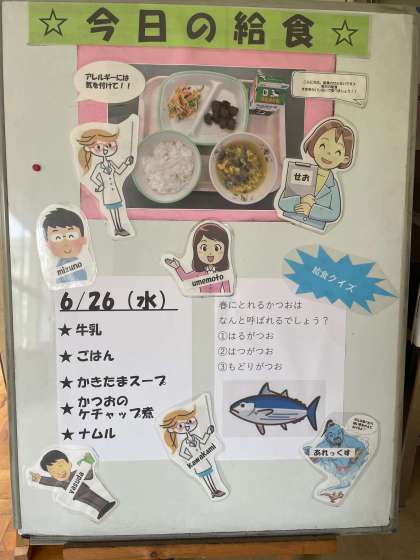 ☆今日の給食☆
アレルギーには
気を付けて！！
せお
mizuno
umemoto
給食クイズ
6/26（水）
★牛乳
★ごはん
★かきたまスープ
★かつおの
ケチャップ煮
★ナムル
春にとれるかつおは
なんと呼ばれるでしょう？
①はるがつお
②はつがつお
③もどりがつお
yasuda
Kawakami
あれっくす